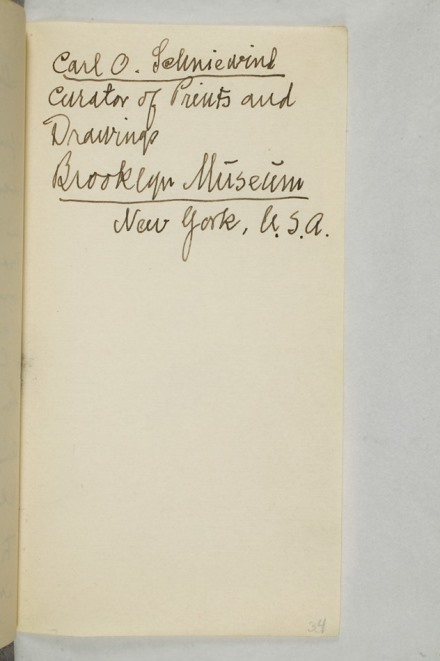 Carl O. Schniewind
Curator of Prints and
Drawings
Brooklyn Museum
New York, U.S.A.
34